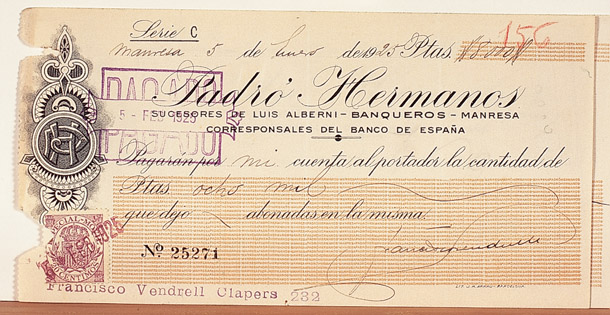 Serie C
156
Manresa 5 de Enero de 1925 Ptas. #8000#
PAGADO
Padró Hermanos
5 - FEB 1925
SUCESORES DE LUIS ALBERNI - BANQUEROS - MANRESA
PAGADO
CORRESPONSALES DEL BANCO DE ESPAÑA
Pagarán por mi cuenta al portador la cantidad de
Ptas. ocho mil
que dejo abonadas en la misma.
1925
No. 25271
Francisco Vendrell Clapers 232